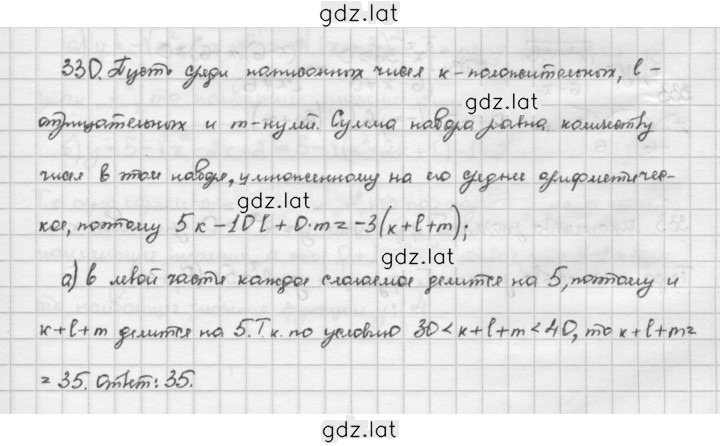 gdz.lat
330. Пусть среди написанных чисел к-положительных, l-
gdz.lat
отрицательных и m-нулей. Сумма набора равна количеству
чисел в этом наборе, умноженному на его среднее арифметичес-
gdz.lat
кое, поэтому 5к-10l+0·m=-3(к+l+m);
gdz.lat
а) в левой части каждое слагаемое делится на 5, поэтому и
к+l+m делится на 5. Т.к. по условию 30<к+l+m<40, то к+l+m=
gdz.lat
=35. Ответ: 35.
gdz.lat